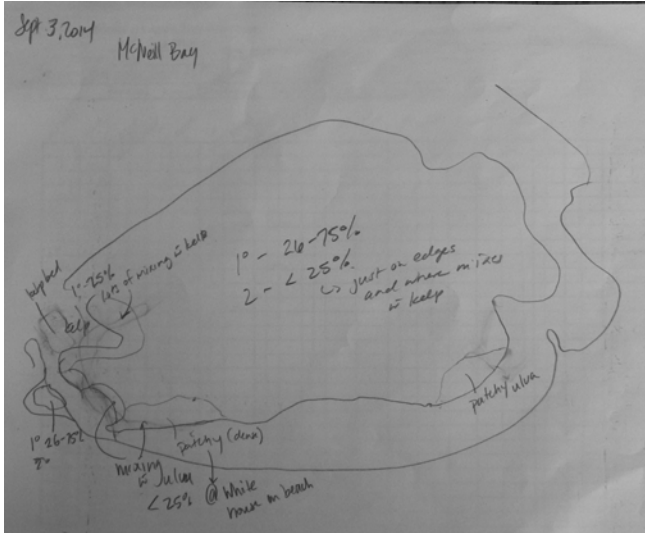 Sept 3, 2014
McNeill Bay
1° - 26-75%
2 - < 25%
↳ just on edges
and where mixes
w̄ kelp
kelp bed
1° - 25%
lots of mixing w̄ kelp
kelp
patchy ulva
1° 26-75%
mixing
w̄ ulva
< 25%
patchy (dense)
@ white
house on beach